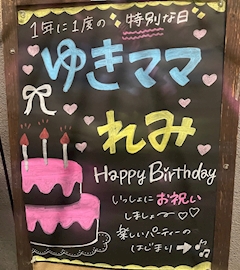 1年に1度の 特別な日
ゆきママ
れみ
Happy Birthday
いっしょにお祝い
しましょー♡♡
楽しいパーティーの
はじまり→♫